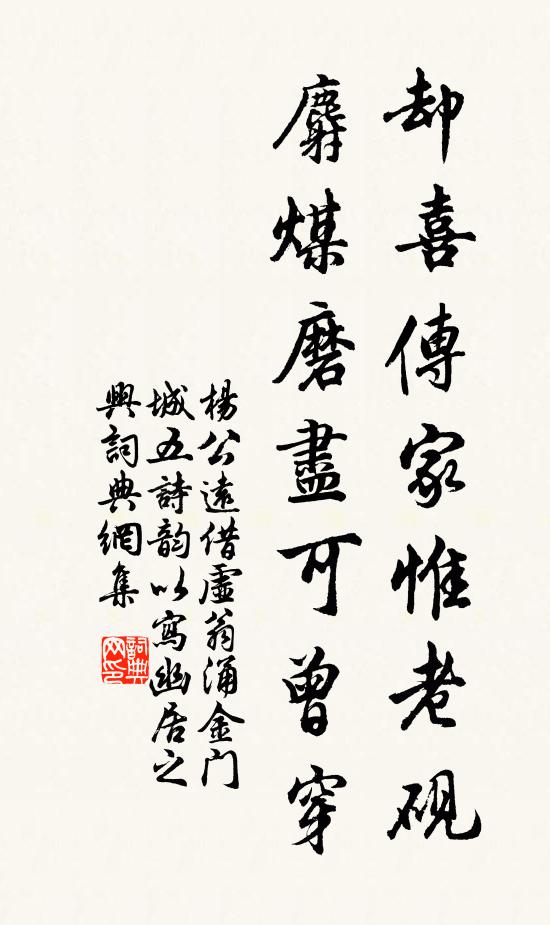 却喜傳家惟老硯
麝煤磨盡可曾穿
楊公遠借虛翁涌金门
城五詩韵以寫幽居之
興詞典網集
詞典网印